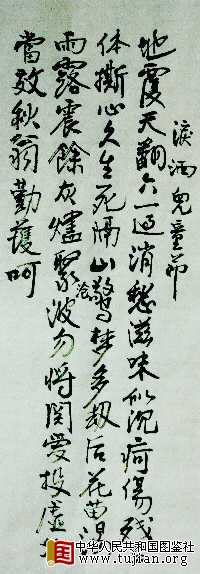 淚洒兒童節
地覆天翻六一過消愁滋味似沉疴傷殘
体撕心久生死隔山驚梦多劫后花苗
雨露震餘灰燼聚沧波勿將関愛投虛
當效秋翁勤護呵
国
中华人民共和国图鉴社
www.tujian.org